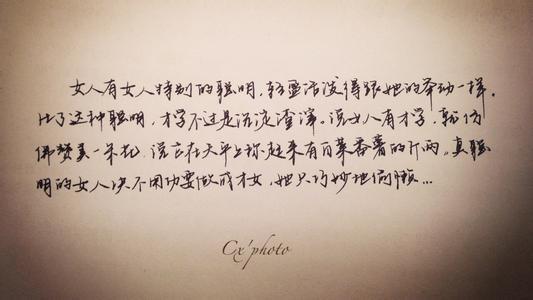 女人有女人特别的聪明,轻盈活泼得跟她的举动一样。
比了这种聪明,才学不过是沉淀渣滓。说女人有才学,就仿
佛赞美一朵花,说它在天平上称起来有白菜番薯的斤两。真聪
明的女人决不用功要做成才女,她只巧妙地偷懒...
Cx'photo